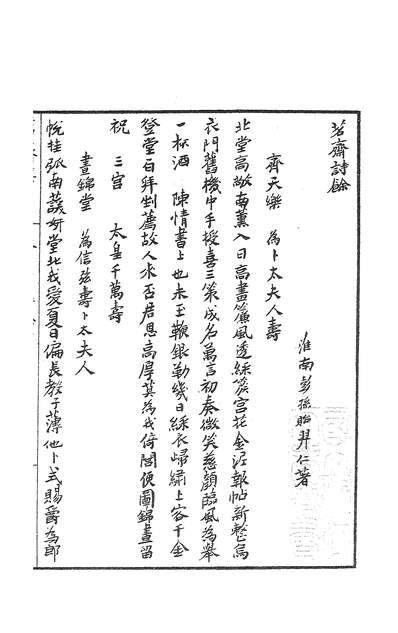 茗齋詩餘
淮南彭孫貽羿仁著
齊天樂 為卜太夫人壽
北堂高敞南薰入日高晝簾風透綵筵宮花金泥報帖新整烏
衣門舊機中手授喜三策成名萬言初奏微笑慈顏臨風為舉
一杯酒 陳情書上也未玉鞭銀勒幾日綵衣歸繡上客千金
登堂百拜剉薦故人來否君恩高厚莫為我倚閭便圖錦晝留
祝 三宮 太皇千萬壽
晝錦堂 為信弦壽卜太夫人
帨挂弧南萱妍堂北我愛夏日偏長教子薄他卜式賜爵為郎